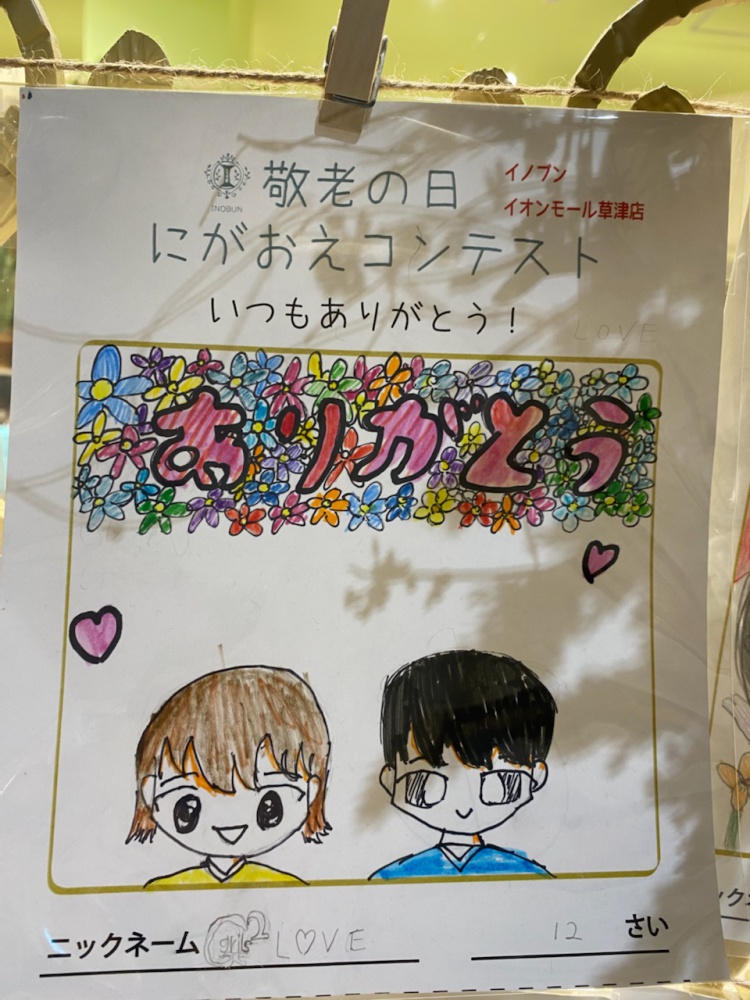 敬老の日
イノブン
イオンモール草津店
INOBUN
にがおえコンテスト
いつもありがとう！
LOVE
ありがとう
ニックネーム LO♡VE
12 さい